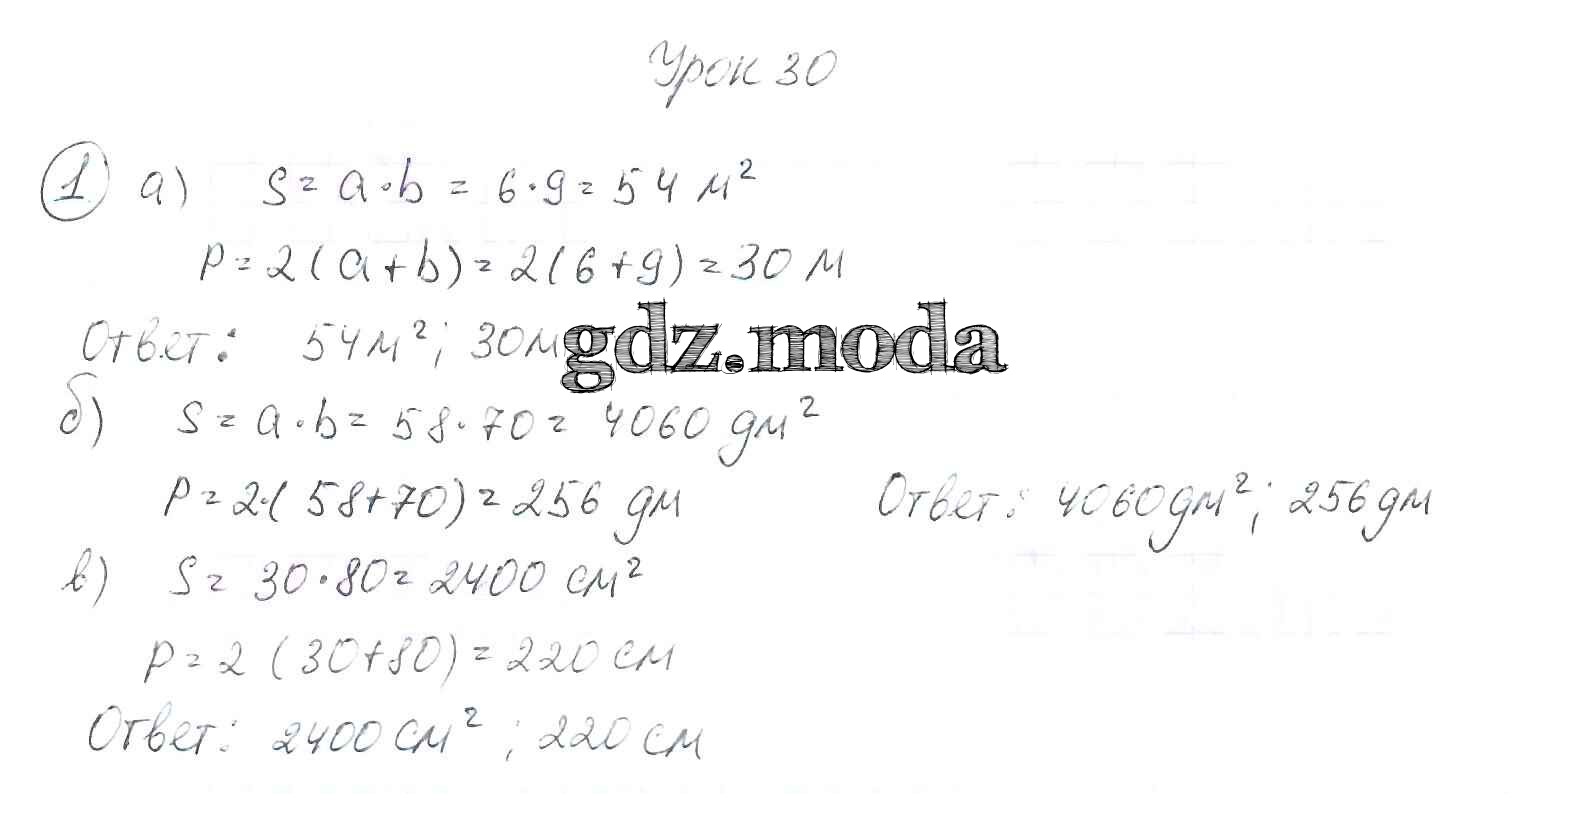 Урок 30
1 а) S = a·b = 6·9 = 54 м²
P = 2(a+b) = 2(6+9) = 30 м
Ответ: 54 м²; 30 м
gdz.moda
б) S = a·b = 58·70 = 4060 дм²
P = 2·(58+70) = 256 дм Ответ: 4060 дм²; 256 дм
в) S = 30·80 = 2400 см²
P = 2 (30+80) = 220 см
Ответ: 2400 см²; 220 см